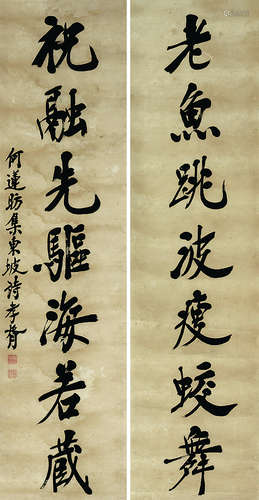 老魚跳波瘦蛟舞
祝融先驅海若藏
何蓮舫集東坡詩孝胥